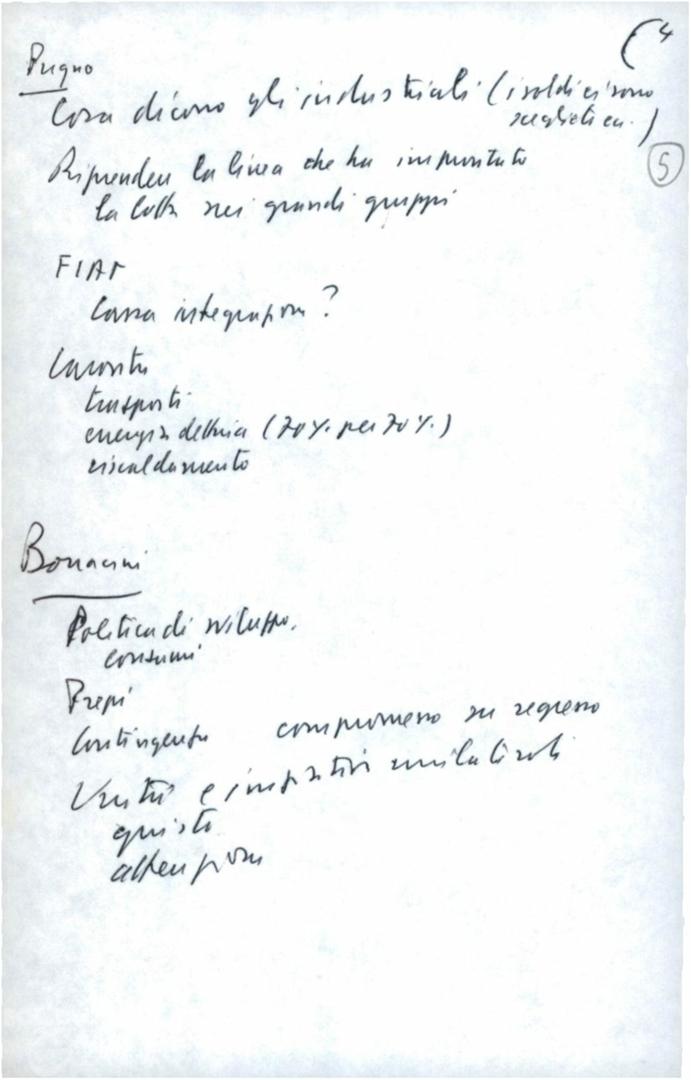 4
Pugno
Cosa dicono gli industriali (i soldi ci sono
5
Riprendere la linea che ha improntato
la lotta nei grandi gruppi
FIAT
Cassa integrazione?
trasporti
energia elettrica (70% per 70%)
riscaldamento
Bonaccini
Politica di sviluppo.
consumi
Prezzi
Contingenza compromesso su regresso
e unilaterali
questo
attenzione